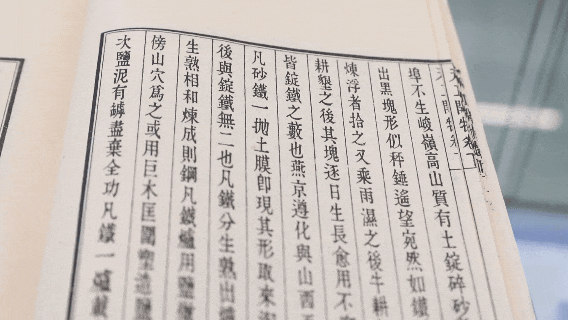 埠不生峻嶺高山質有土錠碎砂
出黑塊形似秤錘遙望宛然如鐵
煉浮者拾之又乘雨濕之後牛耕
耕墾之後其塊逐日生長愈用不
皆錠鐵之藪也燕京遵化與山西
凡砂鐵一拋土膜卽現其形取來
後與錠鐵無二也凡鐵分生熟出爐
生熟相和煉成則鋼凡鐵爐用鹽
傍山穴為之或用巨木匡圍塑造鹽
次鹽泥有罅盡棄全功凡鐵一爐載